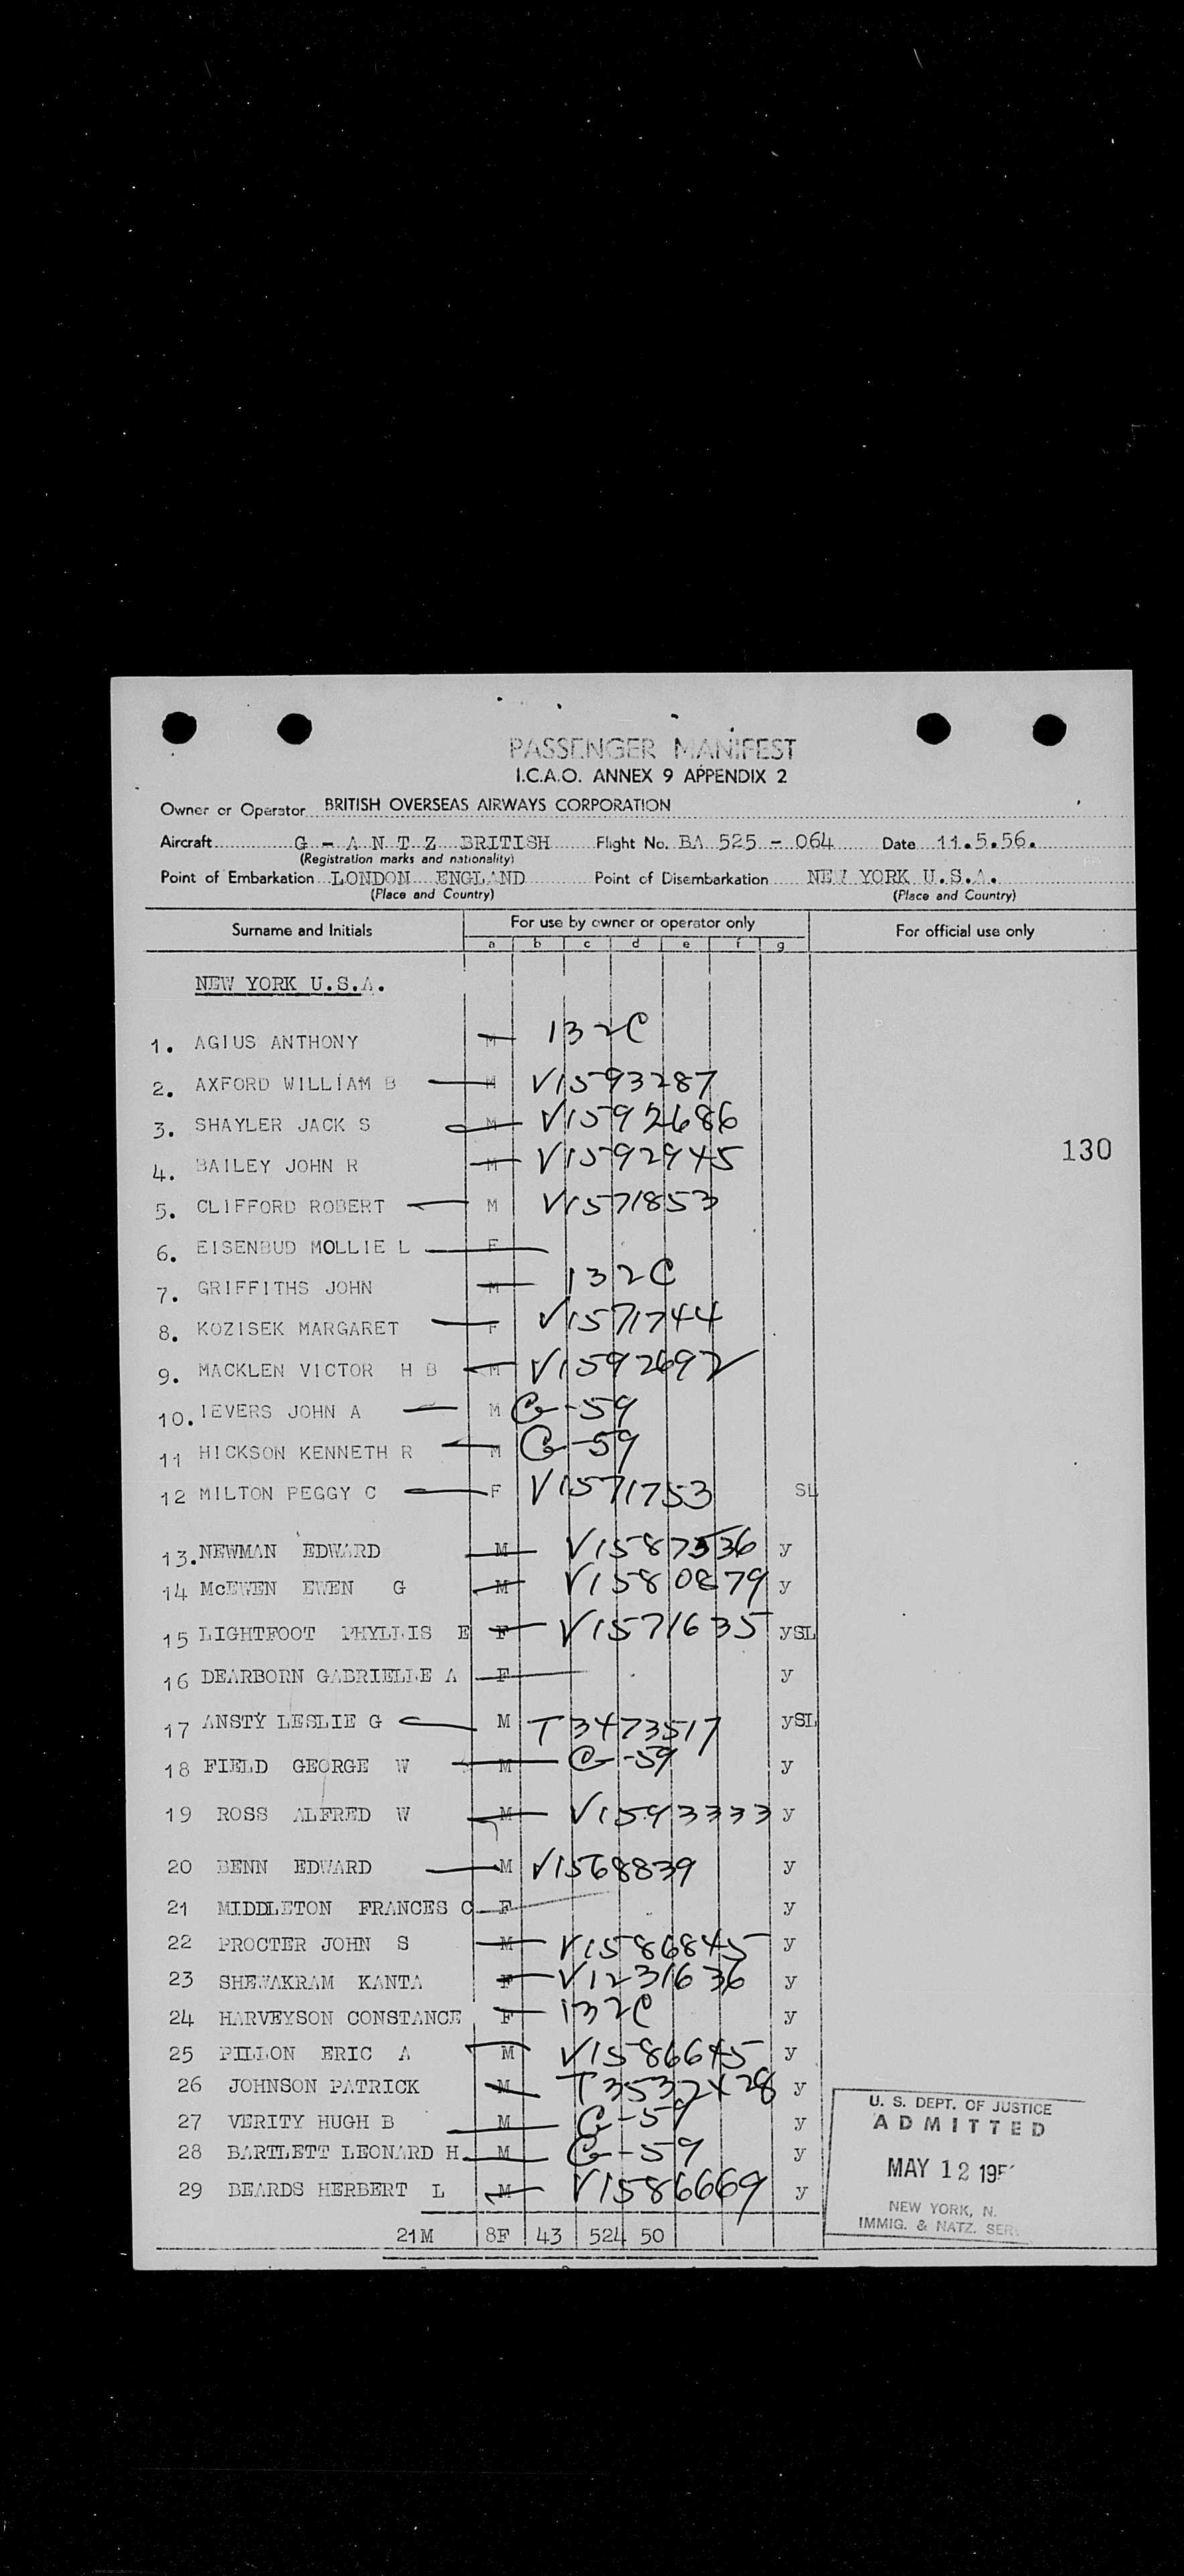 PASSENGER MANIFEST
I.C.A.O. ANNEX 9 APPENDIX 2
Owner or Operator BRITISH OVERSEAS AIRWAYS CORPORATION
Aircraft G - A N T Z BRITISH Flight No. BA 525 - 064 Date 11.5.56.
(Registration marks and nationality)
Point of Embarkation LONDON ENGLAND Point of Disembarkation NEW YORK U.S.A.
(Place and Country) (Place and Country)
Surname and Initials For use by owner or operator only For official use only
a b c d e f g
NEW YORK U.S.A.
1. AGIUS ANTHONY M 132C
2. AXFORD WILLIAM B M V1593287
3. SHAYLER JACK S M V1592686
130
4. BAILEY JOHN R M V1592945
5. CLIFFORD ROBERT M V1571853
6. EISENBUD MOLLIE L F
7. GRIFFITHS JOHN M 132C
8. KOZISEK MARGARET F V1571744
9. MACKLEN VICTOR H B M V1592692
10. IEVERS JOHN A M G-59
11 HICKSON KENNETH R M G-59
12 MILTON PEGGY C F V1571753 SL
13. NEWMAN EDWARD M V1587536 y
14 McEWEN EWEN G M V1580879 y
15 LIGHTFOOT PHYLLIS E F V1571635 ySL
16 DEARBORN GABRIELLE A F y
17 ANSTY LESLIE G M T3473517 ySL
18 FIELD GEORGE W M G-59 y
19 ROSS ALFRED W M V1593333 y
20 BENN EDWARD M V1568839 y
21 MIDDLETON FRANCES C F y
22 PROCTER JOHN S M V1586845 y
23 SHEWAKRAM KANTA F V1231636 y
24 HARVEYSON CONSTANCE F 132C y
25 PILLON ERIC A M V1586645 y
26 JOHNSON PATRICK M T3532428 y
27 VERITY HUGH B M G-59 y
28 BARTLETT LEONARD H M G-59 y
29 BEARDS HERBERT L M V1586669 y
21M 8F 43 524 50
U. S. DEPT. OF JUSTICE
ADMITTED
MAY 12 195
NEW YORK, N.
IMMIG. & NATZ. SER.